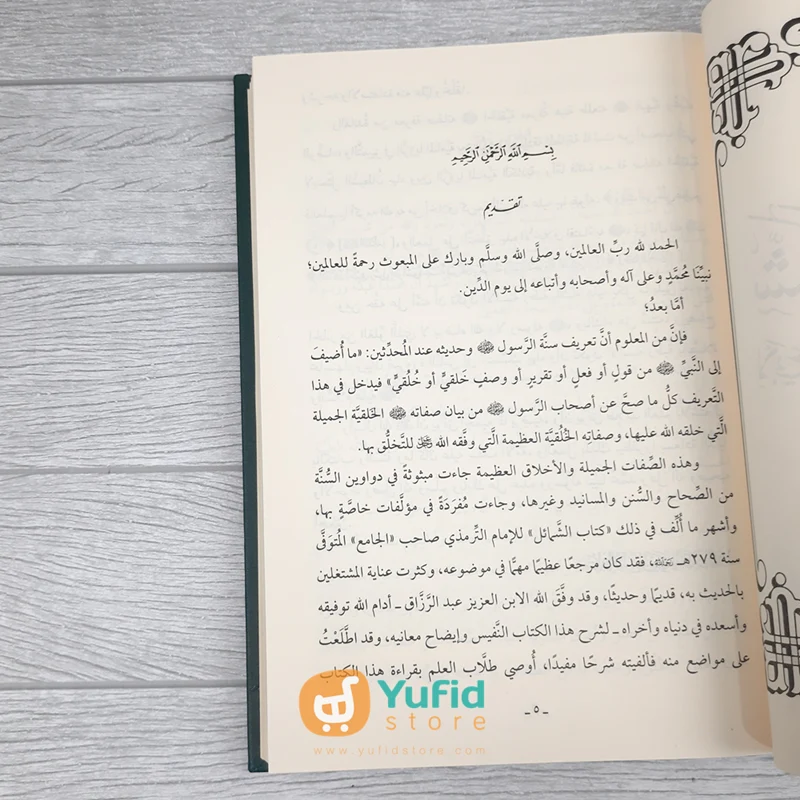 بسم الله الرحمن الرحيم
تقديم
الحمد لله ربِّ العالمين، وصلَّى الله وسلَّم وبارك على المبعوث رحمةً للعالمين؛
نبيِّنَا مُحمَّدٍ وعلى آله وأصحابه وأتباعه إلى يوم الدِّين.
أمَّا بعدُ؛
فإنَّ من المعلوم أنَّ تعريف سنَّة الرَّسول ﷺ وحديثه عند المُحدِّثين: «ما أُضيفَ
إلى النَّبيِّ ﷺ من قولٍ أو فعلٍ أو تقريرٍ أو وصفٍ خَلقيٍّ أو خُلُقيٍّ» فيدخل في هذا
التَّعريف كلُّ ما صحَّ عن أصحاب الرَّسول ﷺ من بيان صفاته ﷺ الخَلقيَّة الجميلة
الَّتي خلقه الله عليها، وصفاتِه الخُلُقيَّة العظيمة الَّتي وفَّقه الله ﷻ للتَّخلُّق بها.
وهذه الصِّفات الجميلة والأخلاق العظيمة جاءت مبثوثةً في دواوين السُّنَّة
من الصِّحاح والسُّنن والمسانيد وغيرها، وجاءت مُفرَدَةً في مؤلَّفات خاصَّةٍ بها،
وأشهر ما أُلِّف في ذلك «كتاب الشَّمائل» للإمام التِّرمذي صاحب «الجامع» المُتوَفَّى
سنة ٢٧٩هـ رحمه الله، فقد كان مرجعًا عظيمًا مهمًّا في موضوعه، وكثرت عناية المشتغلين
بالحديث به، قديمًا وحديثًا، وقد وفَّق الله الابن العزيز عبد الرَّزَّاق ـ أدام الله توفيقه
وأسعده في دنياه وأخراه ـ لشرح هذا الكتاب النَّفيس وإيضاح معانيه، وقد اطَّلَعْتُ
على مواضع منه فألفيته شرحًا مفيدًا، أُوصي طلَّاب العلم بقراءة هذا الكتاب
Yufid
store
www.yufidstore.com
ـ ٥ ـ